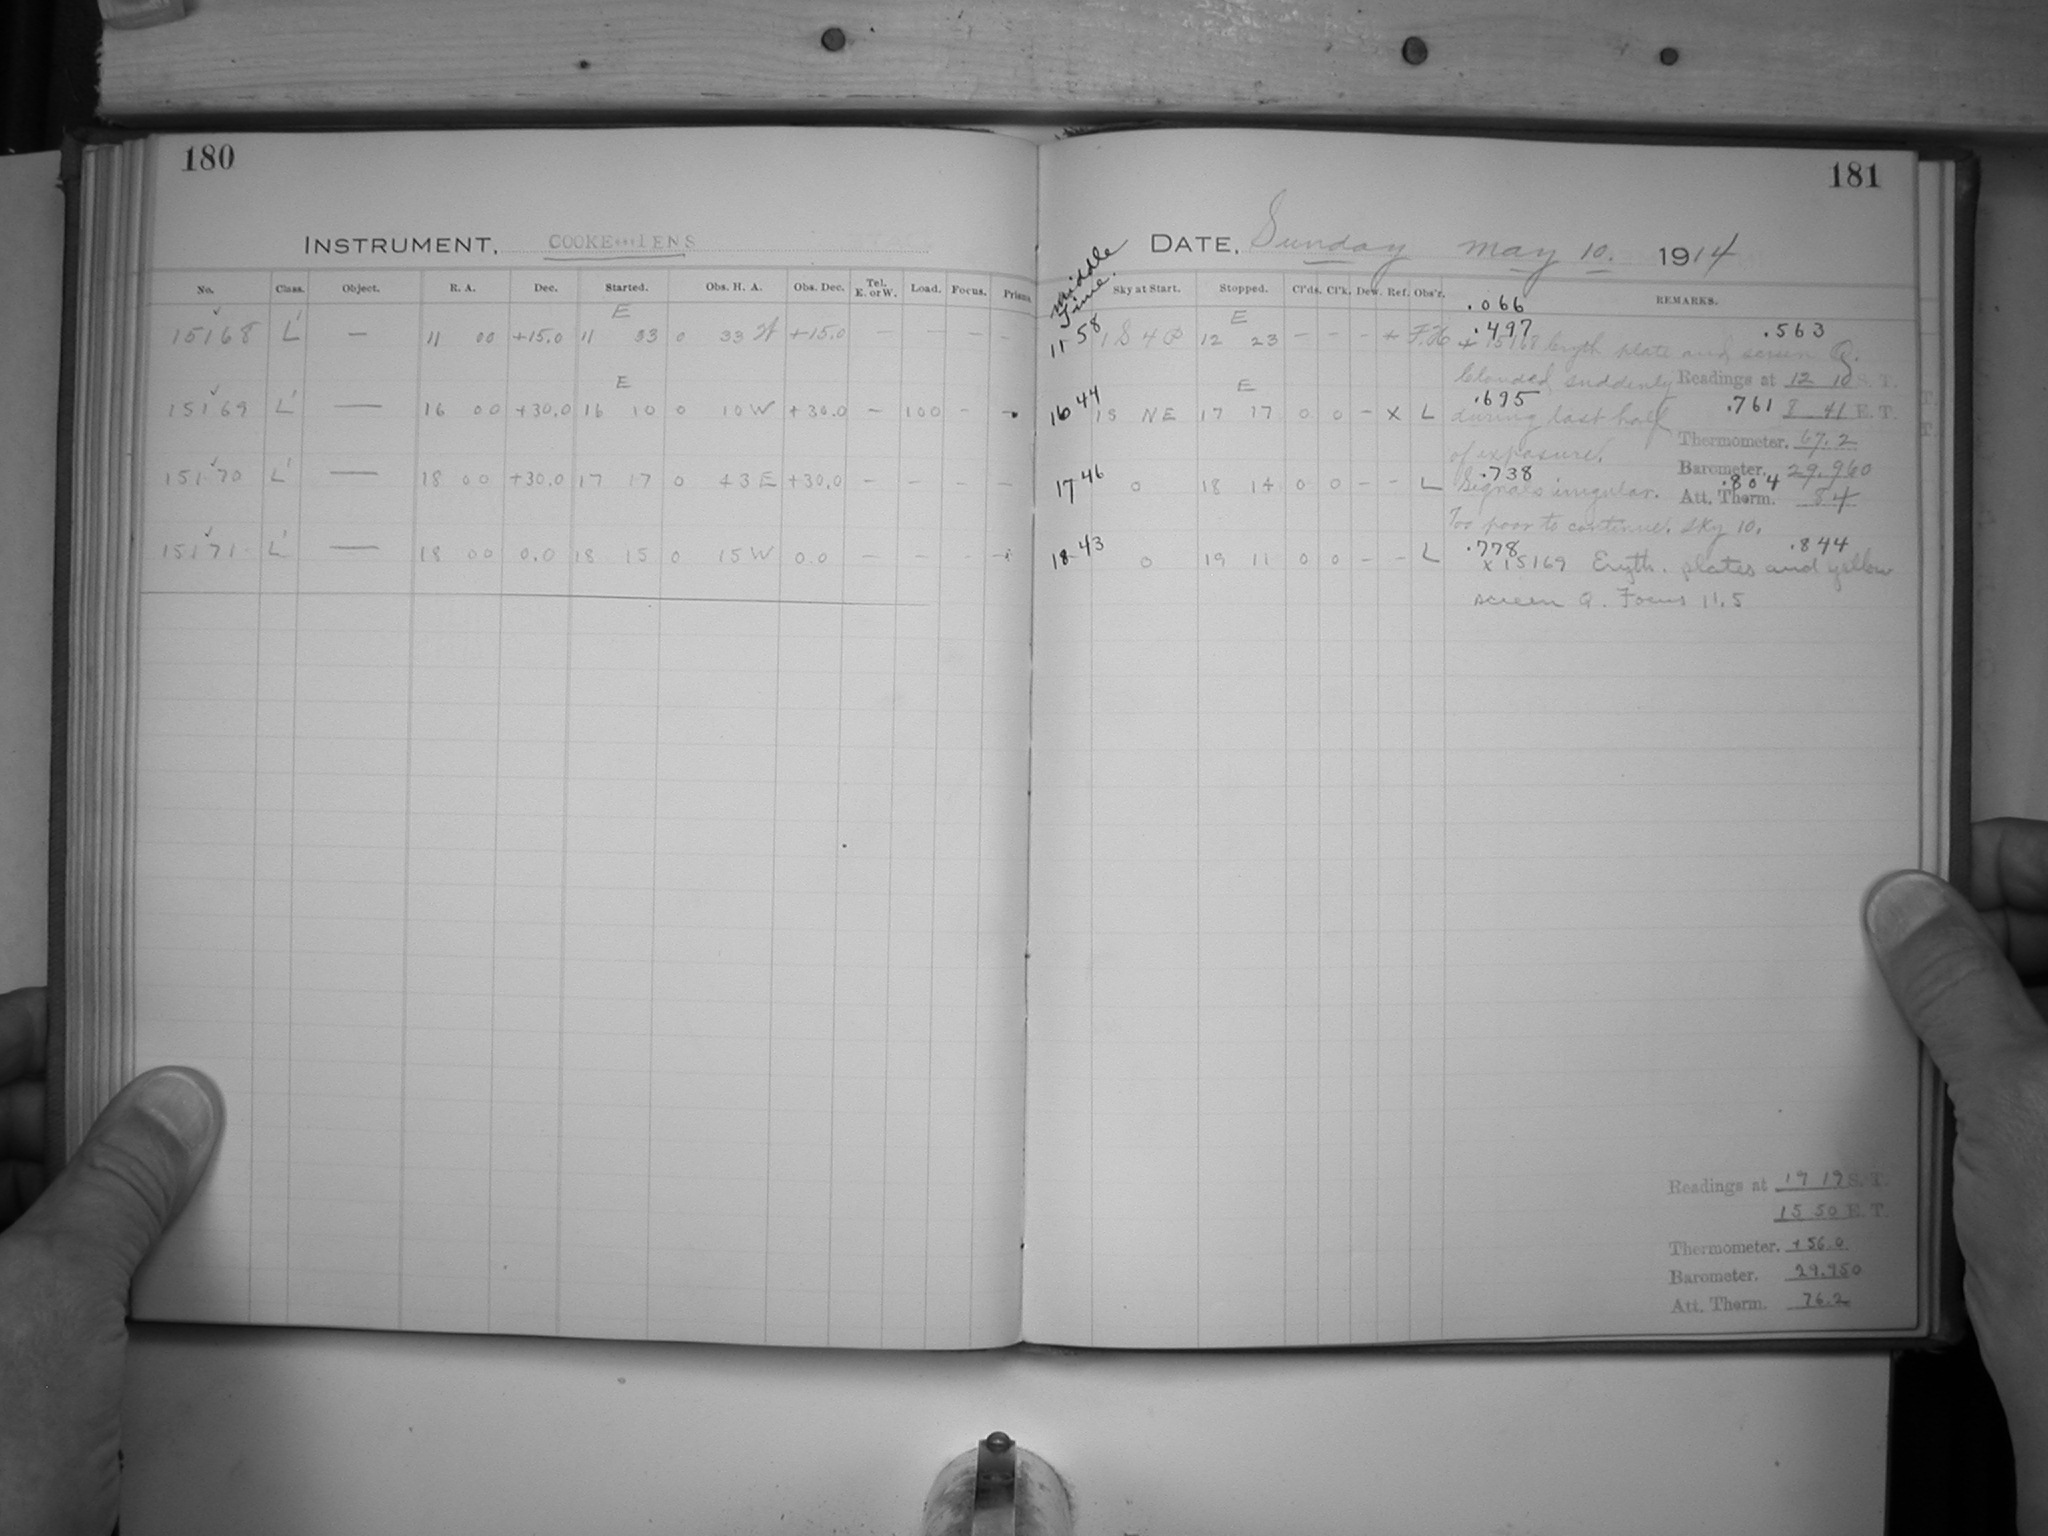 180
INSTRUMENT, COOKE LENS
No. Class. Object. R. A. Dec. Started. Obs. H. A. Obs. Dec. Tel. E. or W. Load. Focus. Prisms.
E
15168 L' — 11 00 +15.0 11 33 0 33 W +15.0 — — — —
E
15169 L' — 16 00 +30.0 16 10 0 10 W +30.0 — 100 — —
15170 L' — 18 00 +30.0 17 17 0 43 E +30.0 — — — —
15171 L' — 18 00 0.0 18 15 0 15 W 0.0 — — — —
181
DATE, Sunday May 10. 1914
Middle Time.
Sky at Start. Stopped. Cl'ds. Cl'k. Dew. Ref. Obs'r. REMARKS.
.066
E
11 58 1 S 4 P 12 23 — — — + F.H .497 .563
+ 15168 Eryth plate and screen Q.
Clouded suddenly
Readings at 12 10 S. T.
E
16 44 1S NE 17 17 0 0 — X L .695 .761 8 41 E. T.
during last half
Thermometer. 67.2
of exposure.
Barometer. 29.960
17 46 0 18 14 0 0 — — L .738 .804
Signals irregular.
Att. Therm. 84
Too poor to continue. Sky 10.
18 43 0 19 11 0 0 — — L .778 .844
x 15169 Eryth. plates and yellow
screen Q. Focus 11.5
Readings at 19 19 S. T.
15 50 E. T.
Thermometer. +56.0
Barometer. 29.950
Att. Therm. 76.2